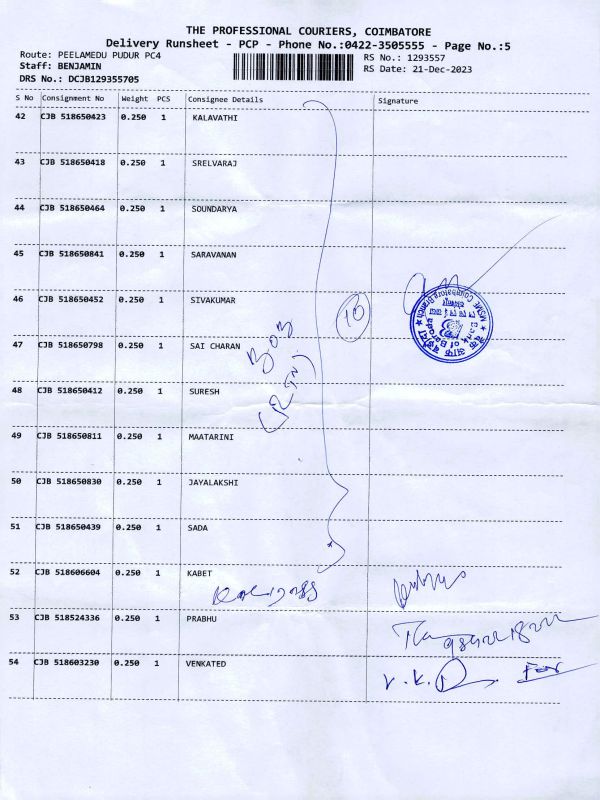 THE PROFESSIONAL COURIERS, COIMBATORE
Delivery Runsheet - PCP - Phone No.:0422-3505555 - Page No.:5
Route: PEELAMEDU PUDUR PC4
RS No.: 1293557
Staff: BENJAMIN
RS Date: 21-Dec-2023
DRS No.: DCJB129355705
S No Consignment No Weight PCS Consignee Details Signature
42 CJB 518650423 0.250 1 KALAVATHI
43 CJB 518650418 0.250 1 SRELVARAJ
44 CJB 518650464 0.250 1 SOUNDARYA
45 CJB 518650841 0.250 1 SARAVANAN
46 CJB 518650452 0.250 1 SIVAKUMAR
10
MSME Coimbatore Branch
Bank of Baroda
47 CJB 518650798 0.250 1 SAI CHARAN
BOB
48 CJB 518650412 0.250 1 SURESH
49 CJB 518650811 0.250 1 MAATARINI
50 CJB 518650830 0.250 1 JAYALAKSHI
51 CJB 518650439 0.250 1 SADA
52 CJB 518606604 0.250 1 KABET
53 CJB 518524336 0.250 1 PRABHU
54 CJB 518603230 0.250 1 VENKATED
V.K.